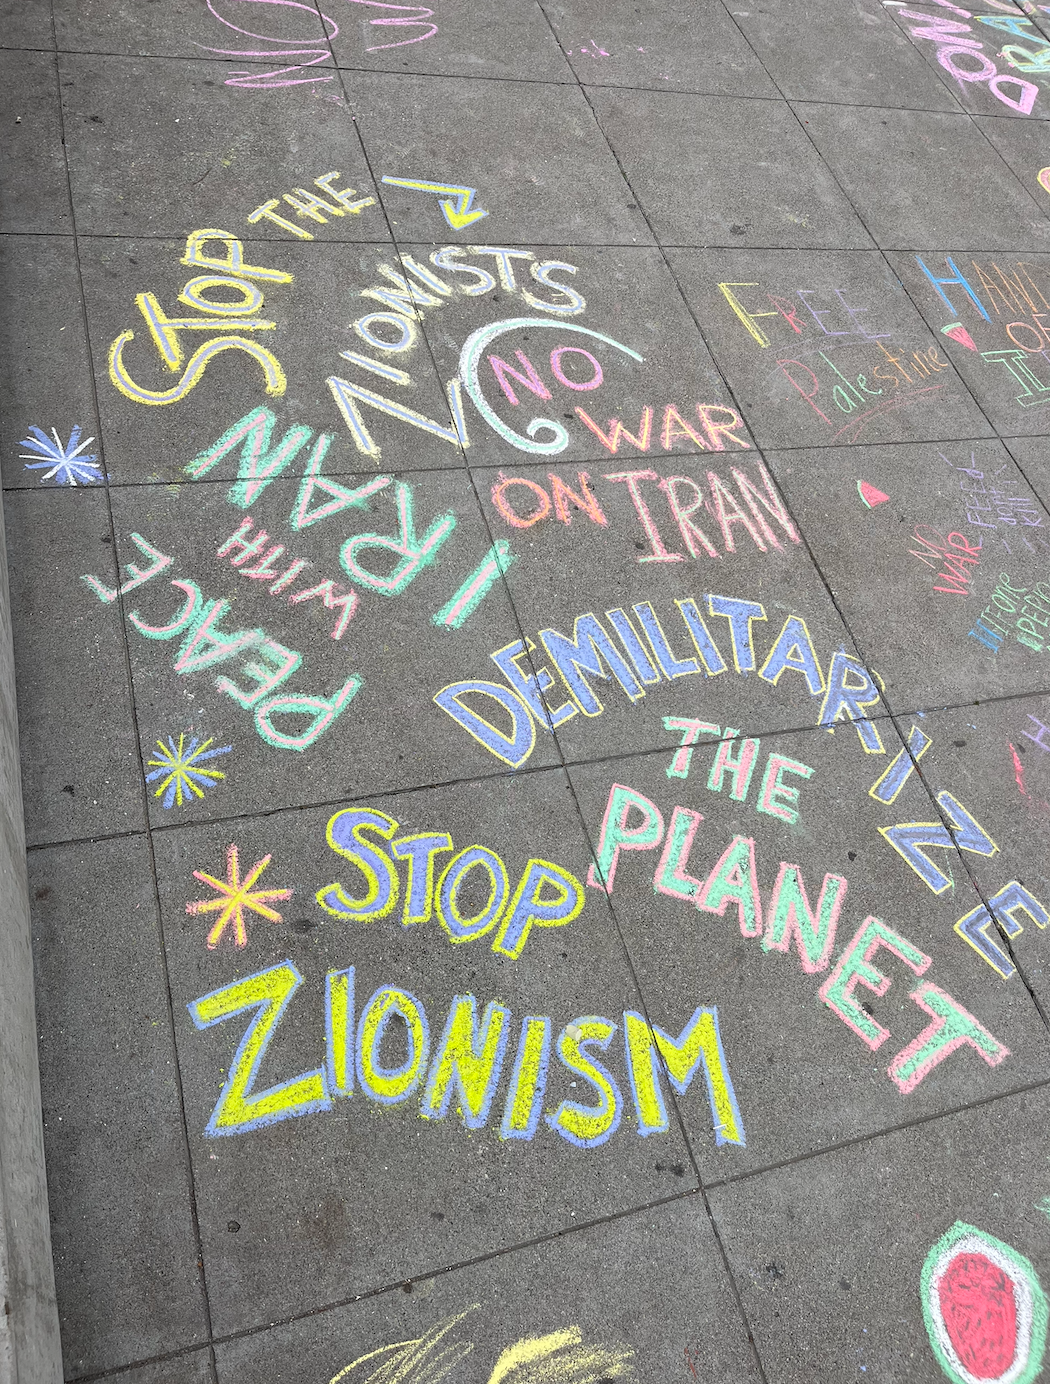 NO
STOP THE
ZIONISTS
NO
WAR
ON IRAN
PEACE
WITH
IRAN
FREE
Palestine
NO
WAR
DEMILITARIZE
THE
PLANET
STOP
ZIONISM